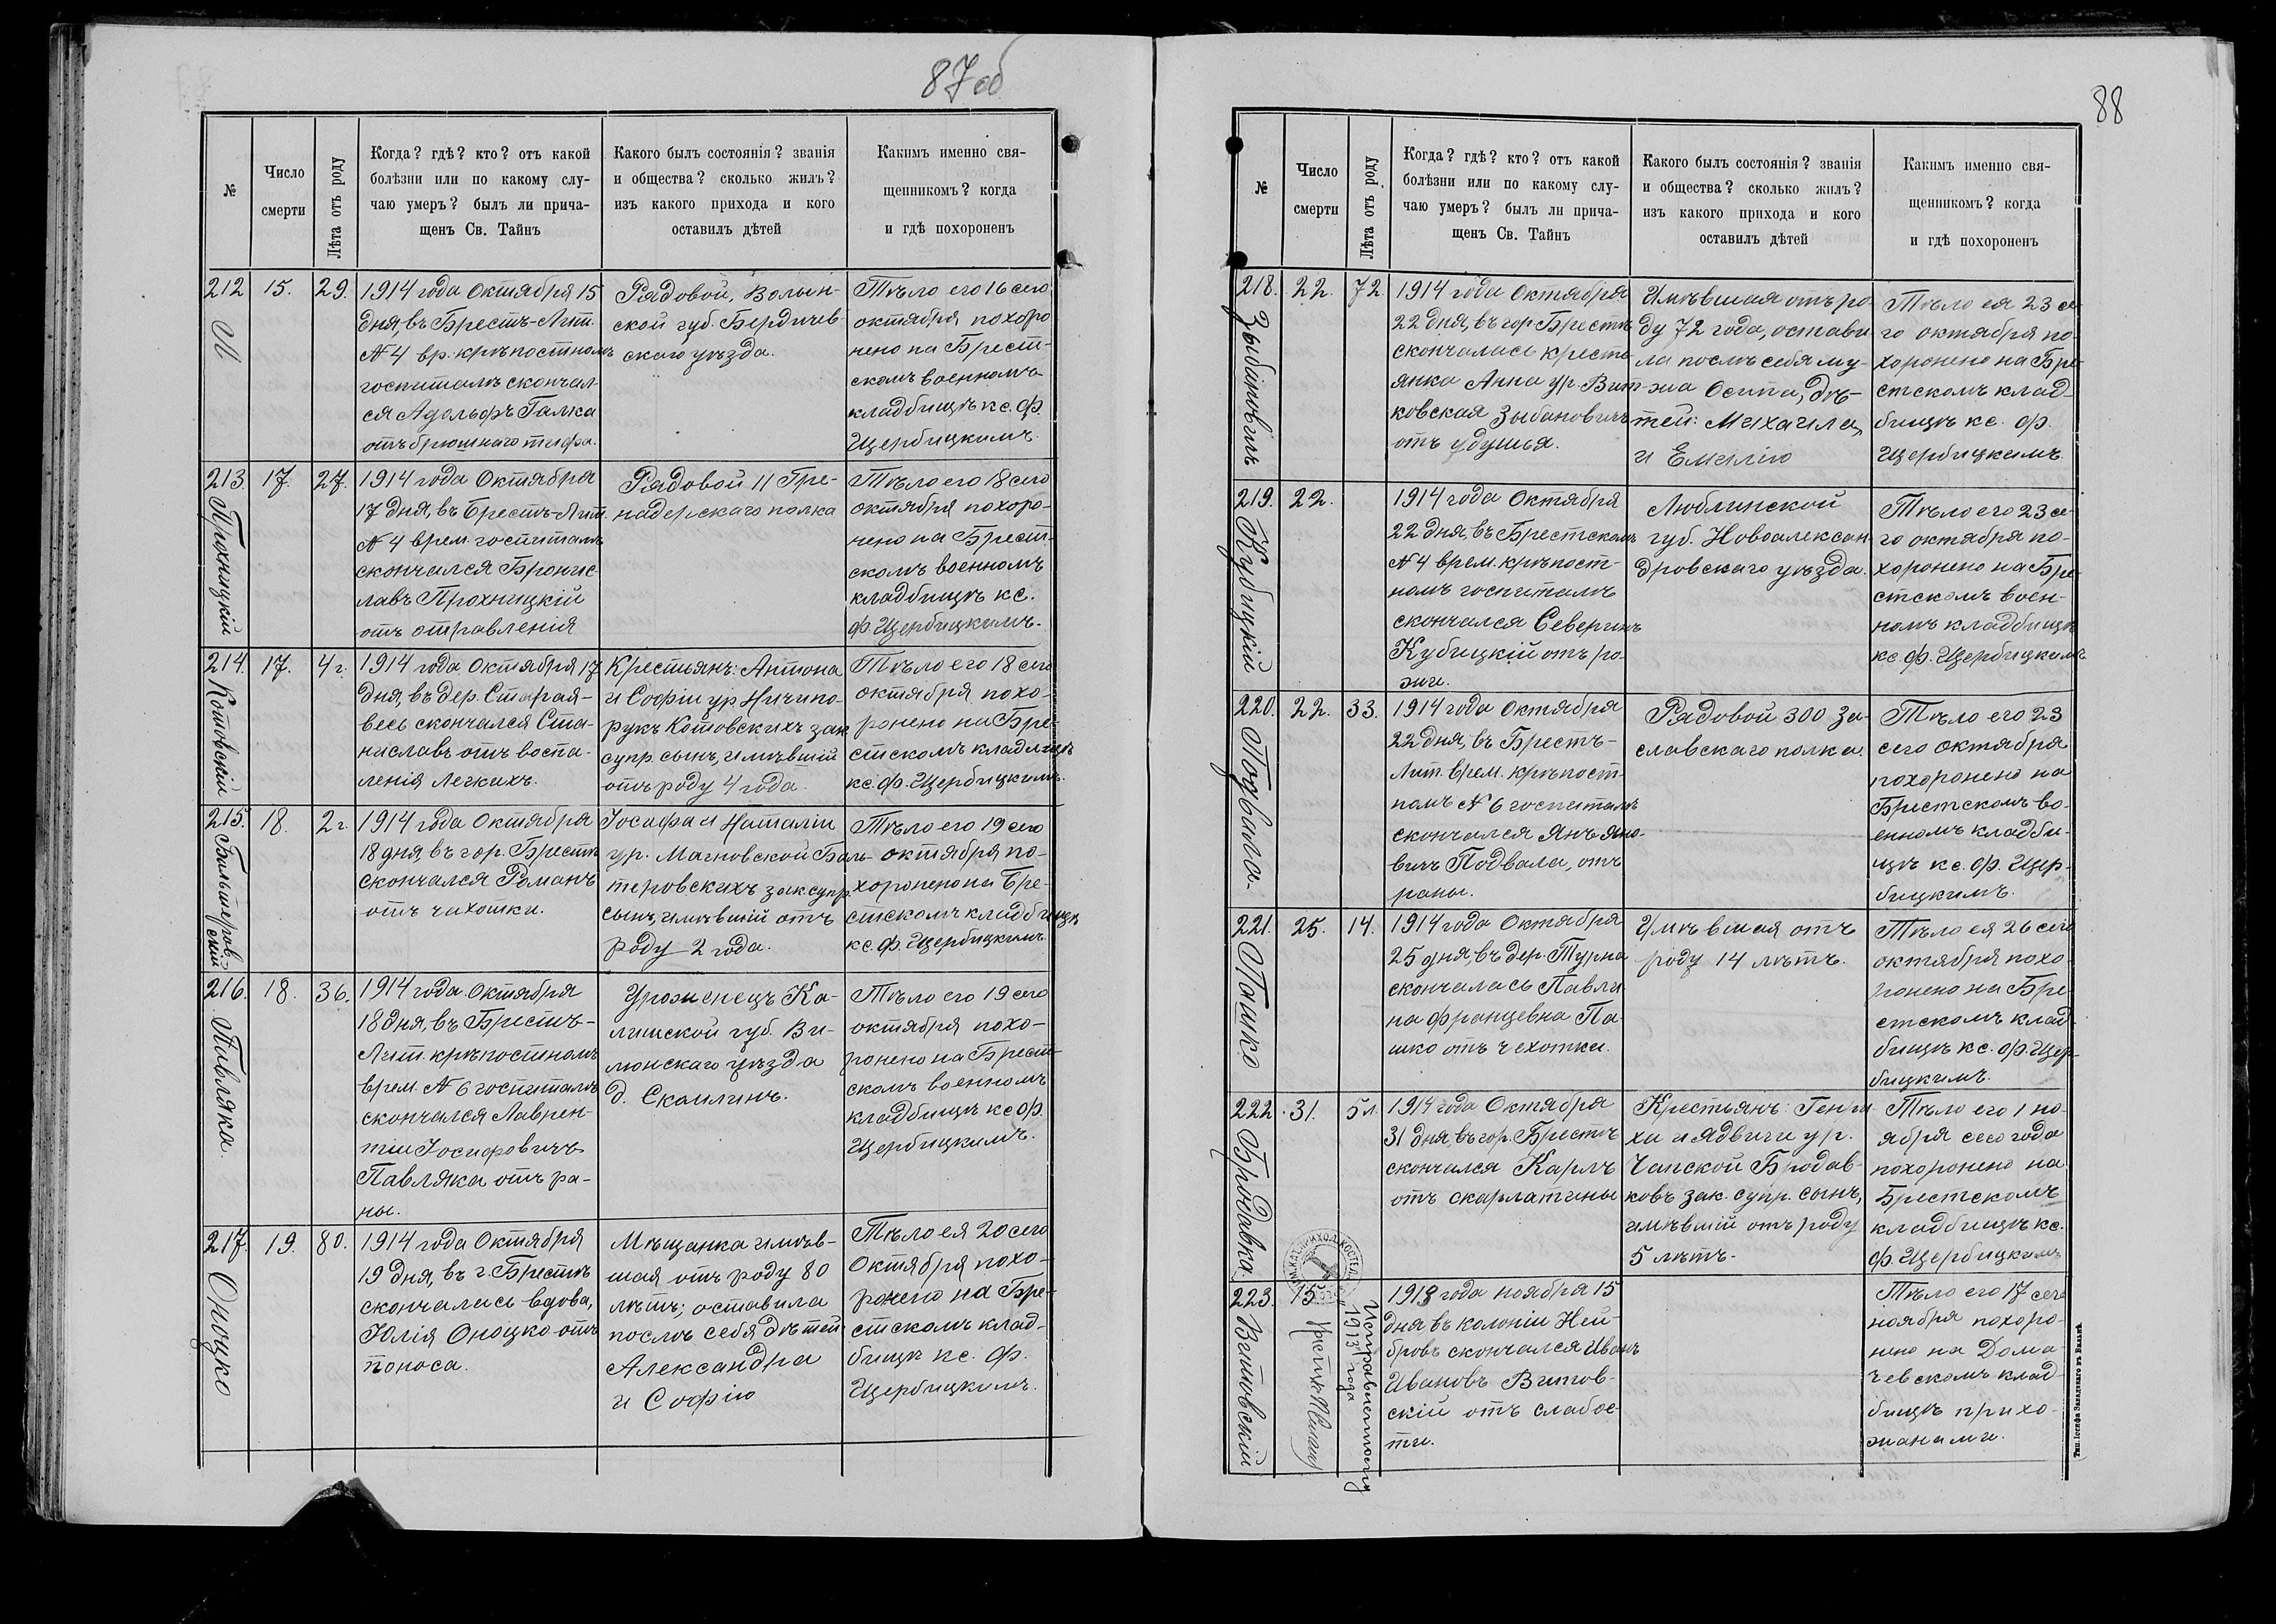 87об
№
Число
смерти
Лѣта отъ роду
Когда? гдѣ? кто? отъ какой
болѣзни или по какому слу-
чаю умеръ? былъ ли прича-
щенъ Св. Тайнъ
Какого былъ состоянія? званія
и общества? сколько жилъ?
изъ какого прихода и кого
оставилъ дѣтей
Какимъ именно свя-
щенникомъ? когда
и гдѣ похороненъ
212
15.
29.
1914 года Октября 15
дня, въ Брестъ-Лит.
№ 4 вр. крѣпостномъ
госпиталѣ скончал-
ся Адольфъ Галка
отъ брюшнаго тифа.
Рядовой, Волын-
ской губ. Бердичев-
скаго уѣзда.
Тѣло его 16 сего
октября похоро
нено на Брест-
скомъ военномъ
кладбищѣ кс. Ф.
Щербицкимъ.
213.
Прохницкій
17.
27.
1914 года Октября
17 дня, въ Брестъ-Лит.
№ 4 врем. госпиталѣ
скончался Бронис-
лавъ Прохницкій
отъ отравленія
Рядовой 11 Гре-
надерскаго полка
Тѣло его 18 сего
октября похоро-
нено на Брест-
скомъ военномъ
кладбищѣ кс.
Ф. Щербицкимъ.
214.
Котовскій
17.
4 г.
1914 года Октября 17
дня, въ дер. Старая-
весь скончался Ста-
ниславъ отъ воспа-
ленія легкихъ.
Крестьянъ: Антона
и Софіи ур. Ничипо-
рукъ Котовскихъ зак
супр. сынъ, имѣвшій
отъ роду 4 года.
Тѣло его 18 сего
октября похо-
ронено на Бре-
стскомъ кладбищѣ
кс. Ф. Щербицкимъ.
215.
Бальтеров-
скій
18.
2 г.
1914 года Октября
18 дня, въ гор. Брестѣ
скончался Романъ
отъ чахотки.
Іосафа и Наталіи
ур. Малновской Баль-
теровскихъ зак супр.
сынъ, имѣвшій отъ
роду 2 года.
Тѣло его 19 сего
октября по-
хоронено на Бре-
стскомъ кладбищѣ
кс. Ф. Щербицкимъ
216.
Павляка.
18.
36.
1914 года Октября
18 дня, въ Брестъ-
Лит. крѣпостномъ
врем. № 6 госпиталѣ
скончался Лаврен-
тій Іосифовичъ
Павляка отъ ра-
ны.
Уроженецъ Ка-
лишской губ. Ви-
люнскаго уѣзда
д. Скомлинъ.
Тѣло его 19 сего
октября похо-
ронено на Брест-
скомъ военномъ
кладбищѣ кс Ф.
Щербицкимъ.
217.
Оноцко
19.
80.
1914 года Октября
19 дня, въ г. Брестѣ
скончалась вдова,
Юлія Оноцко отъ
поноса.
Мѣщанка имѣв-
шая отъ роду 80
лѣтъ; оставила
послѣ себя дѣтей
Александра
и Софію
Тѣло ея 20 сего
Октября похо-
ронено на Бре-
стскомъ клад-
бищѣ кс. Ф.
Щербицкимъ.
88
№
Число
смерти
Лѣта отъ роду
Когда? гдѣ? кто? отъ какой
болѣзни или по какому слу-
чаю умеръ? былъ ли прича-
щенъ Св. Тайнъ
Какого былъ состоянія? званія
и общества? сколько жилъ?
изъ какого прихода и кого
оставилъ дѣтей
Какимъ именно свя-
щенникомъ? когда
и гдѣ похороненъ
218.
Зыбановичъ
22.
72.
1914 года Октября
22 дня, въ гор Брестѣ
скончалась кресть-
янка Анна ур. Вит-
ковская Зыбановичъ
отъ удушья.
Имѣвшая отъ ро-
ду 72 года, остави
ла послѣ себя му-
жа Осипа, дѣ-
тей: Михаила,
и Емилію
Тѣло ея 23 се-
го октября по-
хоронено на Бре-
стскомъ клад-
бищѣ кс. Ф.
Щербицкимъ.
219.
Кубицкій
22.
1914 года Октября
22 дня, въ Брестскомъ
№ 4 врем. крѣпост-
номъ госпиталѣ
скончался Северинъ
Кубицкій отъ ро-
жи.
Люблинской
губ. Новоалексан-
дровскаго уѣзда.
Тѣло его 23 се-
го октября по-
хоронено на Бре-
стскомъ воен-
номъ кладбищѣ
кс. Ф. Щербицкимъ.
220.
Подвала.
22.
33.
1914 года Октября
22 дня, въ Брестъ-
Лит. врем. крѣпост-
номъ № 6 госпиталѣ
скончался Янъ Яно-
вичъ Подвала, отъ
раны.
Рядовой 300 За-
славскаго полка.
Тѣло его 23
сего октября
похоронено на
Брестскомъ во-
енномъ кладби-
щѣ кс. Ф. Щер-
бицкимъ.
221.
Пашко
25.
14.
1914 года Октября
25 дня, въ дер. Турна
скончалась Павли-
на Францевна Па-
шко отъ чехотки.
Имѣвшая отъ
роду 14 лѣтъ.
Тѣло ея 26 сего
октября похо-
ронено на Бре-
стскомъ клад-
бищѣ кс. Ф. Щер-
бицкимъ.
222.
Бродавка.
31.
5 л.
1914 года Октября
31 дня, въ гор. Брестѣ
скончался Карлъ
отъ скарлатины
Крестьянъ: Генри-
ха и Ядвиги ур.
Чапской Бродав-
ковъ зак. супр. сынъ,
имѣвшій отъ роду
5 лѣтъ.
Тѣло его 1 но-
ября сего года
похоронено на
Брестскомъ
кладбищѣ кс.
Ф. Щербицкимъ
223.
Витовскій
15.
Исправленному
"1913" года
1913 года ноября 15
дня въ колоніи Ней-
бровъ скончался Иванъ
Ивановъ Витов-
скій отъ слабос-
ти.
Тѣло его 17 сего
ноября похоро-
нено на Дома-
чевскомъ клад-
бищѣ прихо-
жанами.
Тип. Іосифа Завадзкаго въ Вильнѣ.